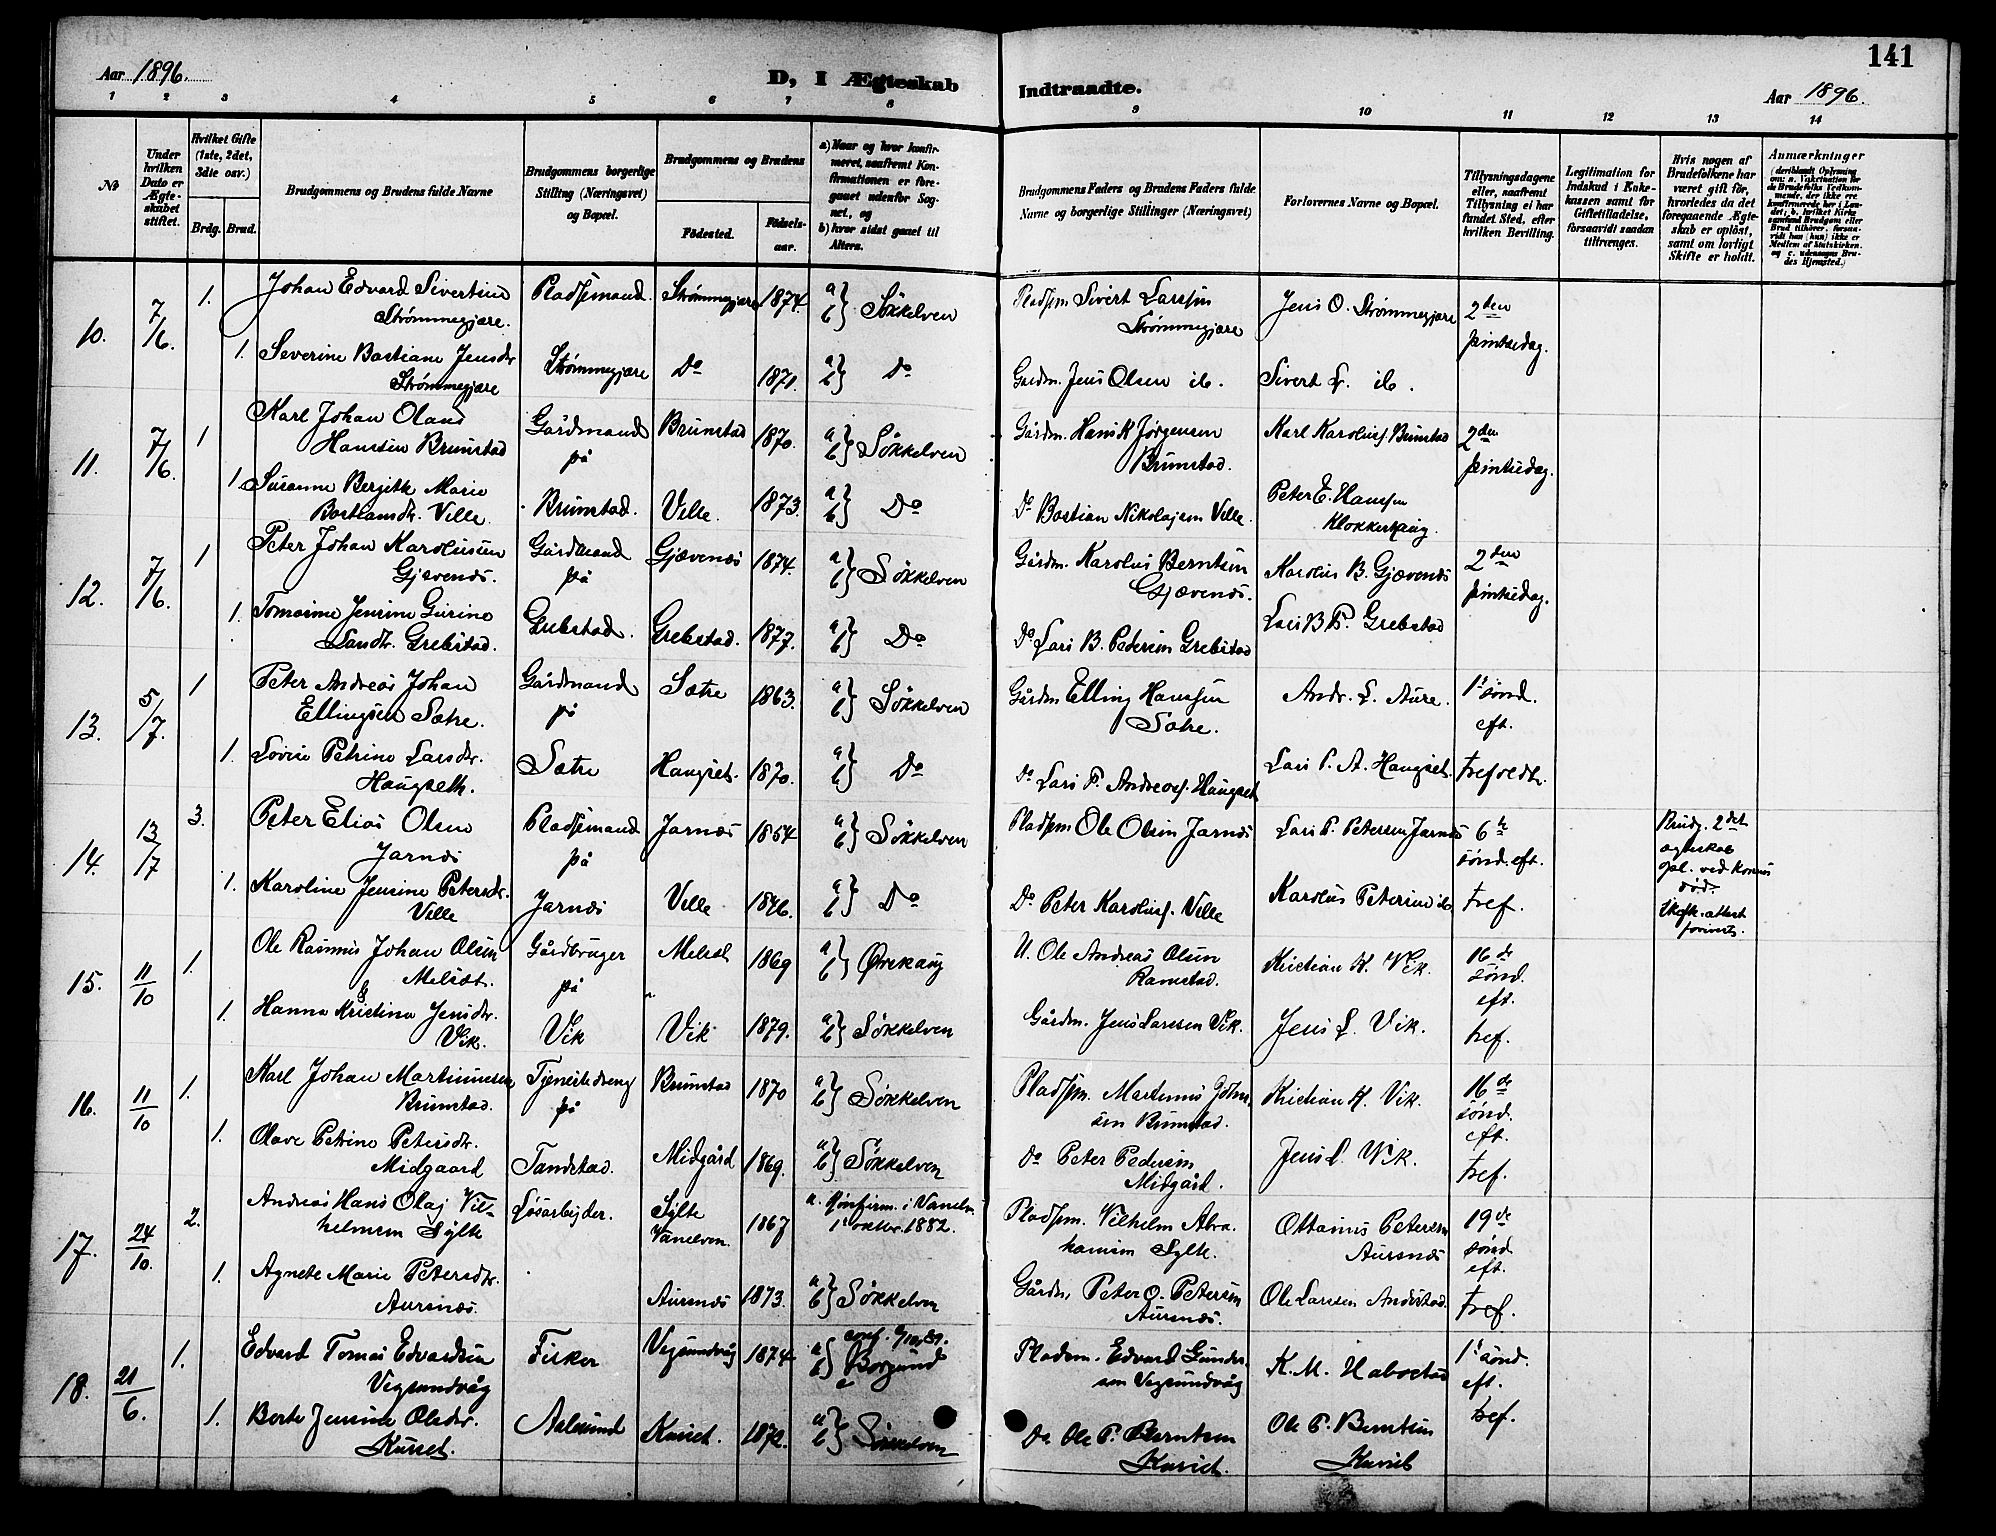 141
Aar 1896.
D, I Ægteskab Indtraadte.
Aar 1896.
1 2 3 4 5 6 7 8 9 10 11 12 13 14
No
Under hvilken Dato er Ægteskabet stiftet.
Hvilket Gifte (1ste, 2det, 3die osv.)
Brdg. Brud.
Brudgommens og Brudens fulde Navne
Brudgommens borgerlige Stilling (Næringsvei) og Bopæl.
Brudgommens og Brudens
Fødested. Fødselsaar.
a) Naar og hvor konfirmeret, saafremt Konfirmationen er foregaaet udenfor Sognet, og
b) hvor sidst gaaet til Alters.
Brudgommens Faders og Brudens Faders fulde Navne og borgerlige Stillinger (Næringsvei)
Forlovernes Navne og Bopæl.
Tillysningsdagene eller, saafremt Tillysning ei har fundet Sted, efter hvilken Bevilling.
Legitimation for Indskud i Enkekassen samt for Giftetilladelse, forsaavidt saadan tiltrænges.
Hvis nogen af Brudefolkene har været gift før, hvorledes da det foregaaende Ægteskab er opløst, samt om lovligt Skifte er holdt.
Anmærkninger
10. 7/6. 1. Johan Edvard Sivertsen Pladsmand. Strømmegjære 1874. a b} Søkkelven Pladsm Sivert Larssen Jens O. Strømmegjære 2den
Strømmegjære. Strømmegjære pintsedag.
1. Severine Bastiane Jensdr Strømmegjære Do 1871. a b} Do Gaardm. Jens Olsen ib. Sivert L. ib.
Strømmegjære
11. 7/6. 1 Karl Johan Olaus Gårdmand Brunstad 1870. a b} Søkkelven Gårdm. Hans K Jørgensen Karl Karoliusf. Brunstad 2den
Hanssen Brunstad på Brunstad. pintsedag.
1. Susanne Bergithe Marie Brunstad. Velle. 1873. a b} Do Do Bastian Nikolajsen Velle. Peter E. Hanssen
Bastiansdr. Velle. Klokkerhaug.
12. 7/6. 1 Peter Johan Karoliussen Gårdmand Gjævenes 1874. a b} Søkkelven Gårdm. Karolus Berntsen Karolus B. Gjævenes 2den
Gjævenes. på Gjævenes. pintsedag.
1. Tomasine Jensine Gurine Grebstad. Grebstad. 1877. a b} Do Do Lars B. Pedersen Grebstad Lars B P. Grebstad
Larsdr. Grebstad.
13. 5/7. 1 Peter Andreas Johan Gårdmand Sætre 1863. a b} Søkkelven Gårdm Elling Hanssen Andr. L. Aure. 1ste sønd.
Ellingsen Sætre. på Sætre. eft.
1. Lovise Petrine Larsdr. Sætre Haugset. 1870. a b} Do Do Lars P. Andreasf. Haugset Lars P. A. Haugset. trefoldh.
Haugseth.
14. 13/7 3. Peter Elias Olsen Pladsmand Jarnæs 1854 a b} Søkkelven Pladsm Ole Olsen Jarnæs Lars P. Petersen Jarnæs 6te Brudg. 2det
Jarnæs på sønd. eft. ægteskab
1. Karoline Jensine Petersdr. Jarnæs Velle 1846. a b} Do Do Peter Karoliusf. Velle Karolus Petersen ib tref. opl. ved konens
Velle død.
15. 11/10 1. Ole Rasmus Johan Olsen Gårdbruger Melset 1869 a b} Ørskaug U. Ole Andreas Olsen Kristian K. Vik. 16de
Melsæt. på Ramstad. sønd.
& eft.
1. Hanna Kristina Jensdr. Vik Vik 1879. a b} Søkkelven Gårdm. Jens Larssen Vik. Jens L. Vik. tref.
Vik.
16. 11/10 1. Karl Johan Martinussen Tjenestedreng Brunstad 1870 a b} Søkkelven Pladsm. Martinus Johns- Kristian K. Vik. 16de
Brunstad. på sen Brunstad. sønd.
1. Olave Petrine Petersdr. Tandstad. Midgård 1869. a b} Søkkelven Do Peter Pedersen Jens L. Vik. eft.
Midgaard Midgård. tref.
17. 24/10. 2. Andreas Hans Olaj Vil- Løsarbejder. Sylte 1867 a. Konfirm. i Vanelv. Pladsm. Vilhelm Abra- Ottanius Petersen 19de
helmsen Sylte Vanelven. 1ste oktbr. 1882. hamsen Sylte. Aursnæs sønd.
1. Agnete Marie Petersdr. Aursnæs 1873. a b} Søkkelven Gårdm. Peter O. Petersen Ole Larssen Andestad. eft.
Aursnæs. Aursnæs. tref.
18. 21/6. 1. Edvard Tomas Edvardsen Fisker Vegsundvåg 1874 a b} Borgund Pladsm. Edvard Gunder- K. M. Habostad 1ste sønd.
Vegsundvåg sen Vegsundvåg eft.
1. Berte Jensine Olsdr. Aalesund Kurset. 1872. a b} Søkkelven Do Ole P. Berntsen Ole P. Berntsen tref.
Kurset. Kurset. Kurset